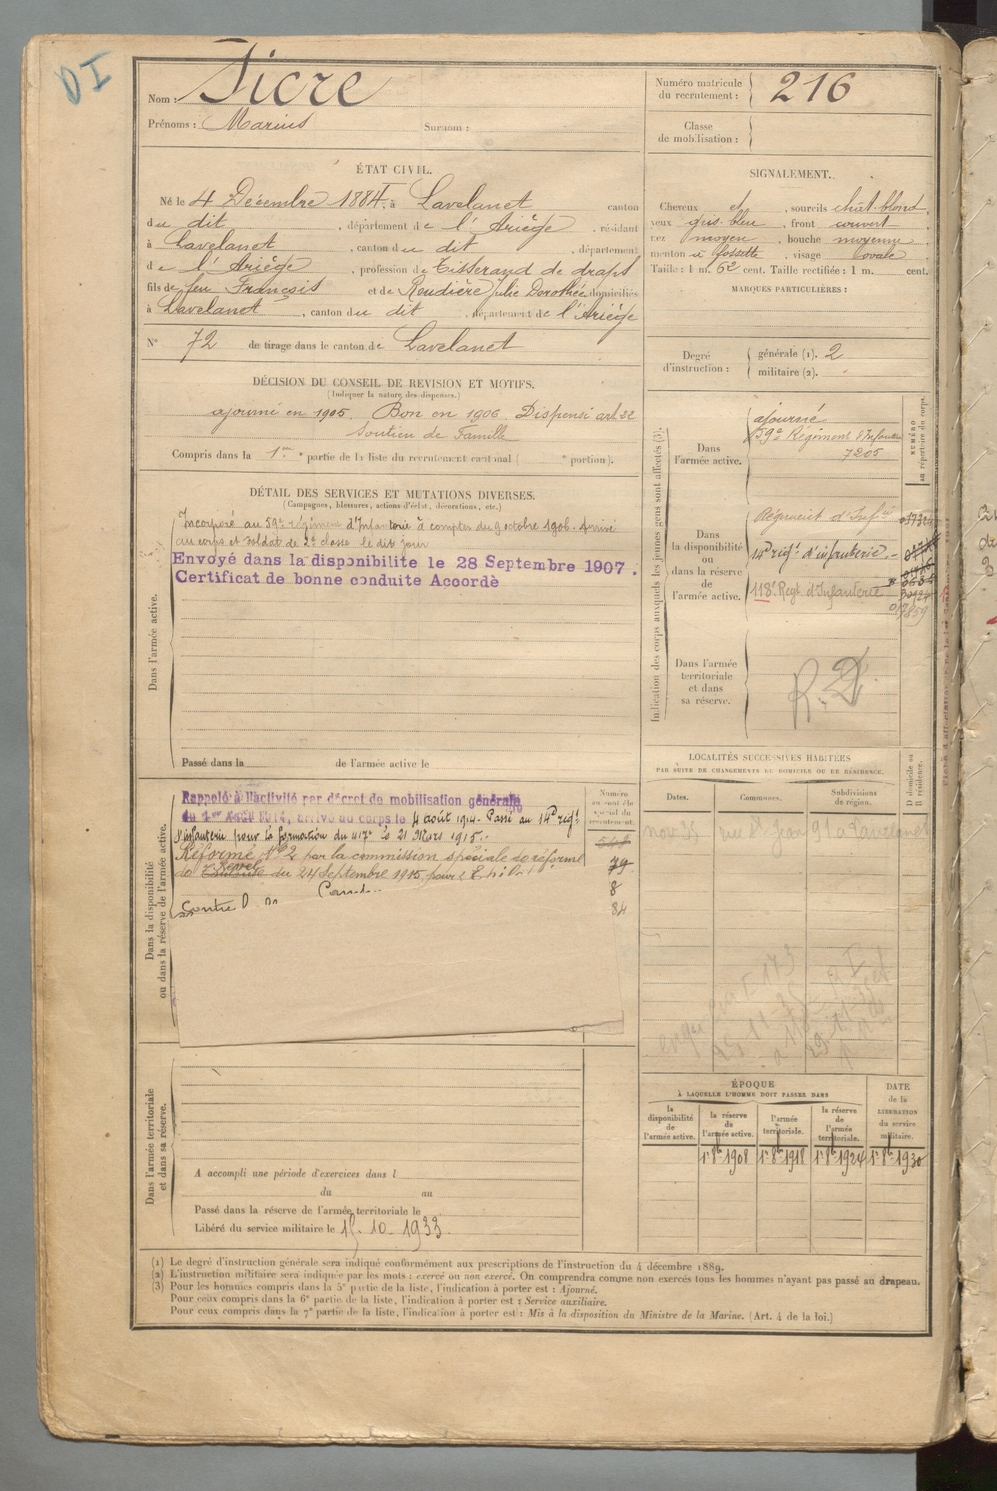 DI
Nom : Sicre
Prénoms : Marius Surnom :
Numéro matricule du recrutement : 216
Classe de mobilisation :
ÉTAT CIVIL.
Né le 4 Décembre 1884, à Lavelanet canton
du dit, département de l'Ariège, résidant
à Lavelanet, canton du dit, département
de l'Ariège, profession de Tisserand de draps
fils de feu François et de Roudière Julie Dorothée domiciliés
à Lavelanet, canton du dit, département de l'Ariège
N° 72 de tirage dans le canton de Lavelanet
SIGNALEMENT.
Cheveux et, sourcils chât. blond,
yeux gris-bleu, front couvert
nez moyen, bouche moyenne
menton à fossette, visage ovale
Taille : 1 m. 62 cent. Taille rectifiée : 1 m. cent.
MARQUES PARTICULIÈRES :
Degré d'instruction : générale (1). 2
militaire (2).
DÉCISION DU CONSEIL DE REVISION ET MOTIFS.
(Indiquer la nature des dispenses.)
ajourné en 1905. Bon en 1906 Dispensé art 22
Soutien de Famille
Compris dans la 1re partie de la liste du recrutement cantonal ( e portion).
DÉTAIL DES SERVICES ET MUTATIONS DIVERSES.
(Campagnes, blessures, actions d'éclat, décorations, etc.)
Dans l'armée active.
Incorporé au 59e régiment d'Infanterie à compter du 9 octobre 1906. Arrivé
au corps et soldat de 2e classe le dit jour
Envoyé dans la disponibilité le 28 Septembre 1907.
Certificat de bonne conduite Accordé
Passé dans la de l'armée active le
Indication des corps auxquels les jeunes gens sont affectés (3).
NUMÉRO au répertoire du corps.
Dans l'armée active.
ajourné
59e Régiment d'Infanterie
7205
Dans la disponibilité ou dans la réserve de l'armée active.
Régiment d'Infie
14e régt d'infanterie.
118e Regt d'Infanterie
Dans l'armée territoriale et dans sa réserve.
R.D
LOCALITÉS SUCCESSIVES HABITÉES
PAR SUITE DE CHANGEMENTS DE DOMICILE OU DE RÉSIDENCE.
Dates. Communes. Subdivisions de région. D domicile ou R résidence.
nov 35 rue St Jean 91 à Lavelanet
Dans la disponibilité ou dans la réserve de l'armée active.
Numéro
Rappelé à l'activité par décret de mobilisation générale
du 1er Août 1914, arrivé au corps le 4 août 1914. Passé au 14e régt
d'infanterie pour la formation du 417e le 21 Mars 1915.
Réformé N°2 par la commission spéciale de réforme
de Toulouse du 24 Septembre 1915 pour
79
8
84
Dans l'armée territoriale et dans sa réserve.
A accompli une période d'exercices dans l
du au
Passé dans la réserve de l'armée territoriale le
Libéré du service militaire le 15-10-1933
ÉPOQUE
À LAQUELLE L'HOMME DOIT PASSER DANS
DATE de la LIBÉRATION du service militaire.
la disponibilité de l'armée active.
la réserve de l'armée active.
l'armée territoriale.
la réserve de l'armée territoriale.
1er 8bre 1908 1er 8bre 1918 1er 8bre 1924 1er 8bre 1930
(1) Le degré d'instruction générale sera indiqué conformément aux prescriptions de l'instruction du 4 décembre 1889.
(2) L'instruction militaire sera indiquée par les mots : exercé ou non exercé. On comprendra comme non exercés tous les hommes n'ayant pas passé au drapeau.
(3) Pour les hommes compris dans la 5e partie de la liste, l'indication à porter est : Ajourné.
Pour ceux compris dans la 6e partie de la liste, l'indication à porter est : Service auxiliaire.
Pour ceux compris dans la 7e partie de la liste, l'indication à porter est : Mis à la disposition du Ministre de la Marine. (Art. 4 de la loi.)